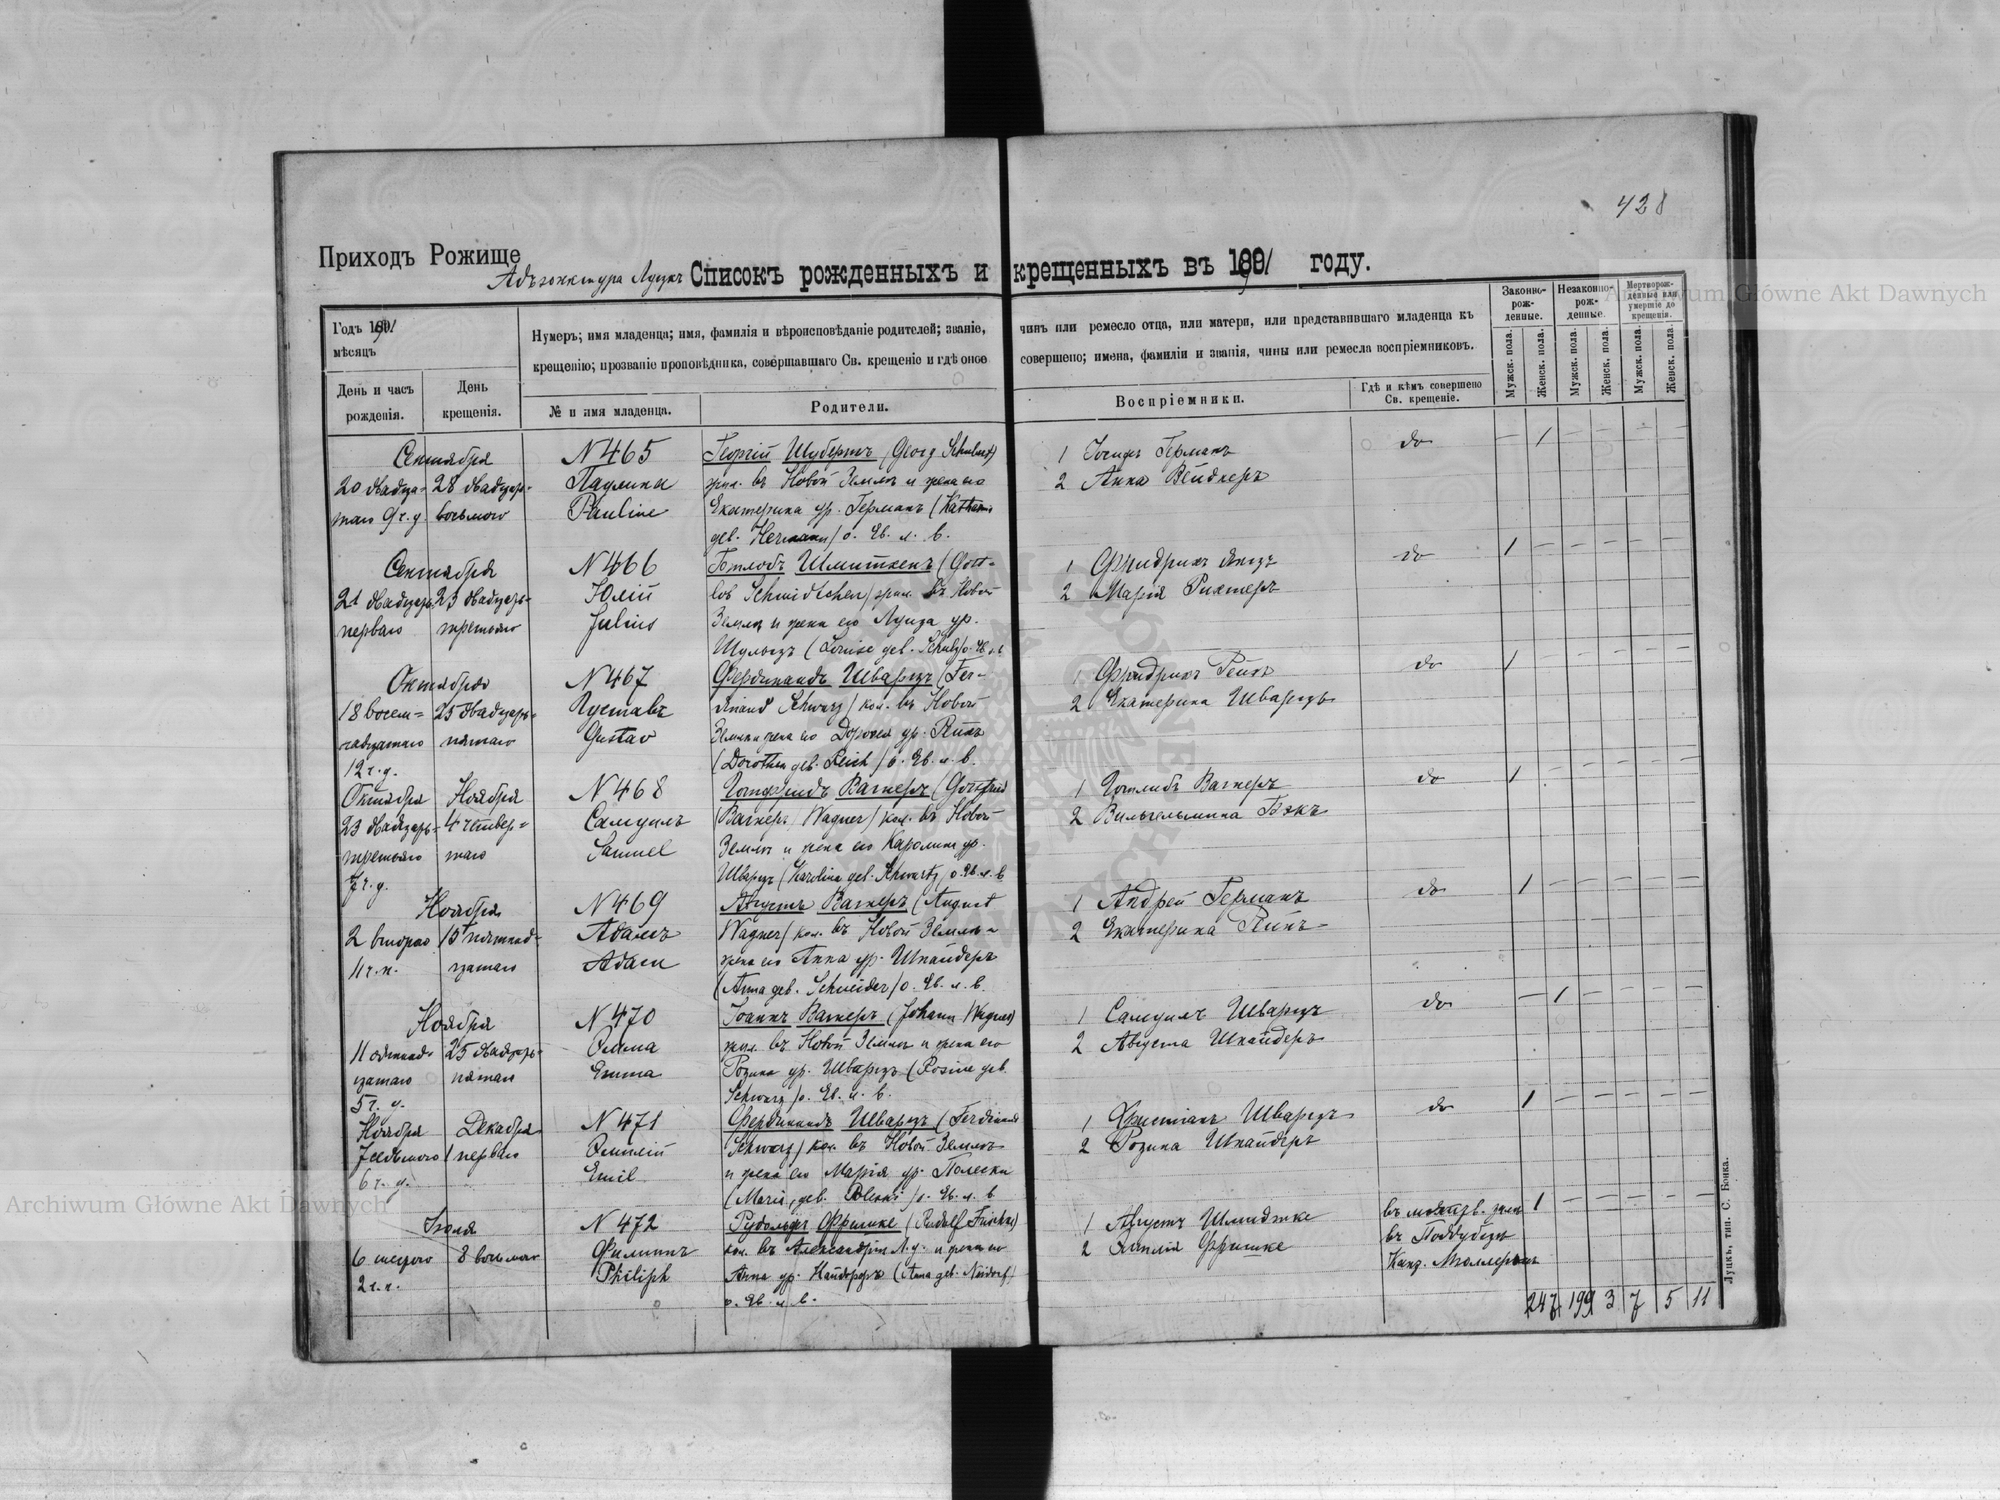 428
Приходъ Рожище
Адъюнктура Луцкъ Списокъ рожденныхъ и крещенныхъ въ 1891 году.
Годъ 1891
мѣсяцъ
Нумеръ; имя младенца; имя, фамилія и вѣроисповѣданіе родителей; званіе, чинъ или ремесло отца, или матери, или представившаго младенца къ
крещенію; прозваніе проповѣдника, совершавшаго Св. крещеніе и гдѣ оное совершено; имена, фамиліи и званія, чины или ремесла воспріемниковъ.
Законно-рож-денные.
Незаконно-рож-денные.
Мертворож-денные или умершіе до крещенія.
Мужск. пола.
Женск. пола.
Мужск. пола.
Женск. пола.
Мужск. пола.
Женск. пола.
День и часъ рожденія.
День крещенія.
№ и имя младенца.
Родители.
Воспріемники.
Гдѣ и кѣмъ совершено Св. крещеніе.
Сентября
20 двадца-
таго 9 ч. у.
28 двадцать
восьмого
N 465
Паулина
Pauline
Георгій Шубертъ (Georg Schubert)
въ Новой Землѣ и жена его
Екатерина ур. Германъ (
geb. Hermann) о. Ев. л. в.
1 Іосифъ Германъ
2 Анна Вейднеръ
do
— 1 — — — —
Сентября
21 двадцать
перваго
23 двадцать-
третьяго
N 466
Юлій
Julius
Готлобъ Шмиттхенъ (Gott-
lob Schmidtchen) въ Новой
Землѣ и жена его Луиза ур.
Шульцъ (Louise geb. Schulz) о. Ев. л. в.
1 Фридрихъ
2 Марія Рихтеръ
do
1 — — — — —
Октября
18 восем-
надцатаго
12 ч. д.
25 двадцать-
пятаго
N 467
Густавъ
Gustav
Фердинандъ Шварцъ (Fer-
dinand Schwarz) кол. въ Новой
Землѣ и жена его Доротея ур.
(Dorothea geb. Reich) о. Ев. л. в.
1 Фридрихъ
2 Екатерина Шварцъ
do
1 — — — —
Октября
23 двадцать-
третьяго
7 ч. д.
Ноября
4 четвер-
таго
N 468
Самуилъ
Samuel
Готфридъ Вагнеръ (Gottfried
(Вагнеръ Wagner) кол. въ Новой
Землѣ и жена его Каролина ур.
Шварцъ (Karolina geb. Schwartz) о. Ев. л. в.
1 Готлибъ Вагнеръ
2 Вильгельмина Бэкъ
do
1 — — — — —
Ноября
2 второго
11 ч. п.
15 пятнад-
цатаго
N 469
Адамъ
Adam
Августъ Вагнеръ (August
Wagner) кол. въ Новой Землѣ и
жена его Анна ур. Шнайдеръ
(Anna geb. Schneider) о. Ев. л. в.
1 Андрей Германъ
2 Екатерина
do
1 — — — — —
Ноября
11 одиннад-
цатаго
5 ч. у.
25 двадцать-
пятаго
N 470
Эмма
Emma
Іоаннъ Вагнеръ (Johann Wagner)
въ Новой Землѣ и жена его
Розина ур. Шварцъ (Rosine geb.
Schwarz) о. Ев. л. в.
1 Самуилъ Шварцъ
2 Августа Шнайдеръ
do
— 1 — — — —
Ноября
7 седьмого
6 ч. у.
Декабря
1 перваго
N 471
Эмилій
Emil
Фердинандъ Шварцъ (Ferdinand
Schwarz) кол. въ Новой Землѣ
и жена его Марія ур. Полески
(Maria, geb. Poleski) о. Ев. л. в.
1 Христіанъ Шварцъ
2 Розина Шнайдеръ
do
1 — — — — —
Іюля
6 шестого
2 ч. п.
8 восьмого
N 472
Филиппъ
Philiph
Рудольфъ Фришке (Rudolf Frischke)
кол. въ Александріи Л. у. и жена его
Анна ур. Найдорфъ (Anna geb. Neidorf)
о. Ев. л. в.
1 Августъ Шмидтке
2 Фришке
въ
въ Поддубцѣ
Канд. Мюллеромъ
1 — — — — —
247 199 3 7 5 11
Луцкъ, тип. С. Бонка.
Archiwum Główne Akt Dawnych
Archiwum Główne Akt Dawnych